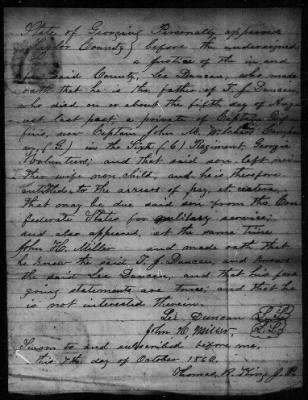 State of Georgia } Personally appeared
Taylor County } before the undersigned
a justice of the in and
for said County, Lee Duncan, who made
oath that he is the father of T. J. Duncan
who died on or about the fifth day of Aug
ust last past, a private of Captain
now Captain John M. Compa
ny (E) in the Sixth (6) Regiment Georgia
Volunteers; and that said son left nei
ther wife nor child, and he is therefore
entitled to the arrears of pay, et cetera,
that may be due said son from the Con
federate States for military service;
and also appeared, at the same time
John H. Miller and made oath that
he knew the said T. J. Duncan, and knows
the said Lee Duncan, and that his fore
going statements are true; and that he
is not interested therein.
Lee Duncan L.S.
John H. Miller L.S.
Sworn to and subscribed before me,
this 7th day of October 1862.
Thomas R. King J.P.